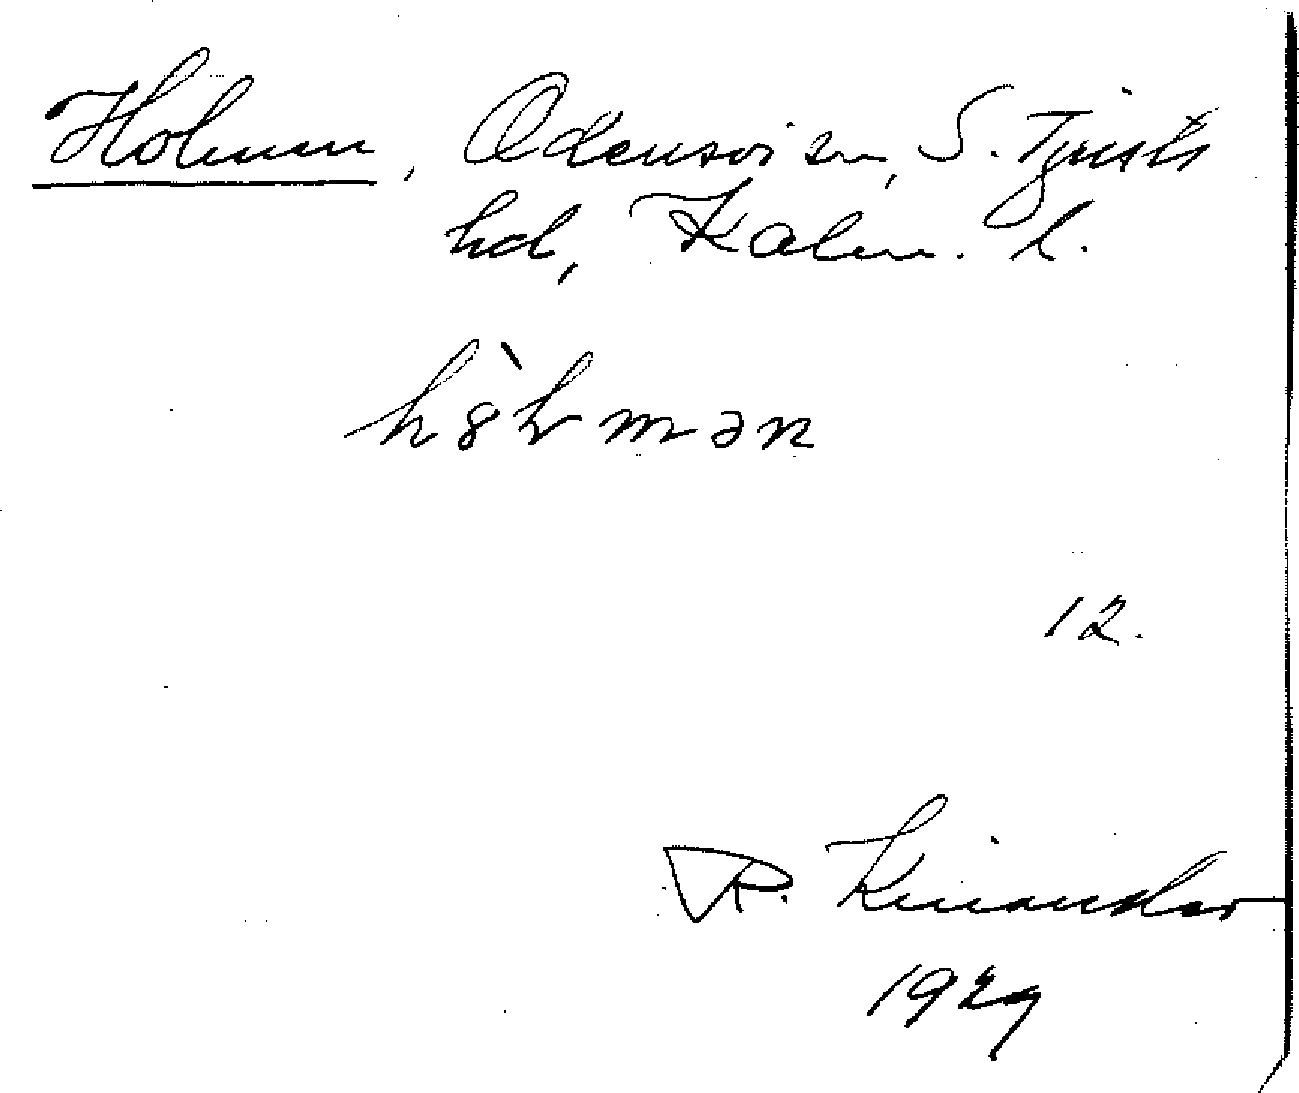 Holmen, Odensvi sn, S. Tjusts
hd, Kalm. l.
hȯ̀lmən
12.
R. Kinander
1929